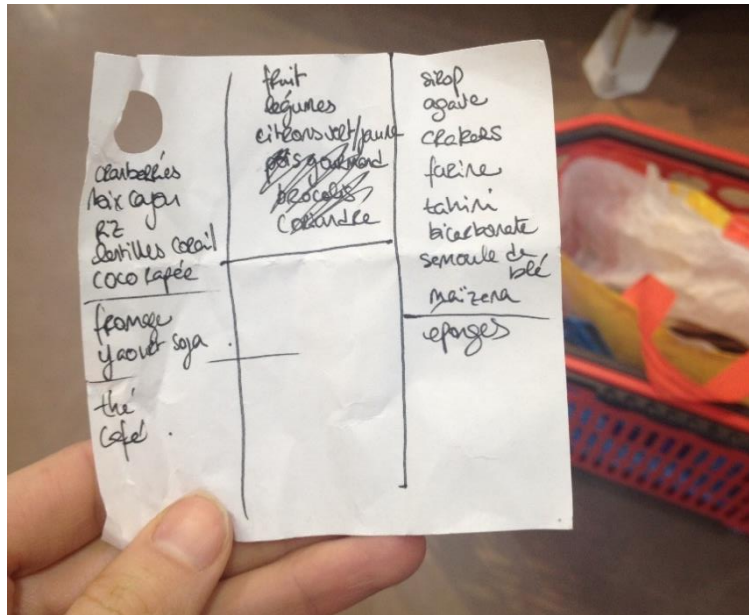 cranberries
Noix cajou
RZ
lentilles corail
coco rapée
fromage
yaourt soja
thé
café
fruit
légumes
citrons vert/jaune
pois gourmand
brocolis
coriandre
sirop
agave
crakers
farine
tahini
bicarbonate
semoule de
blé
maïzena
eponges